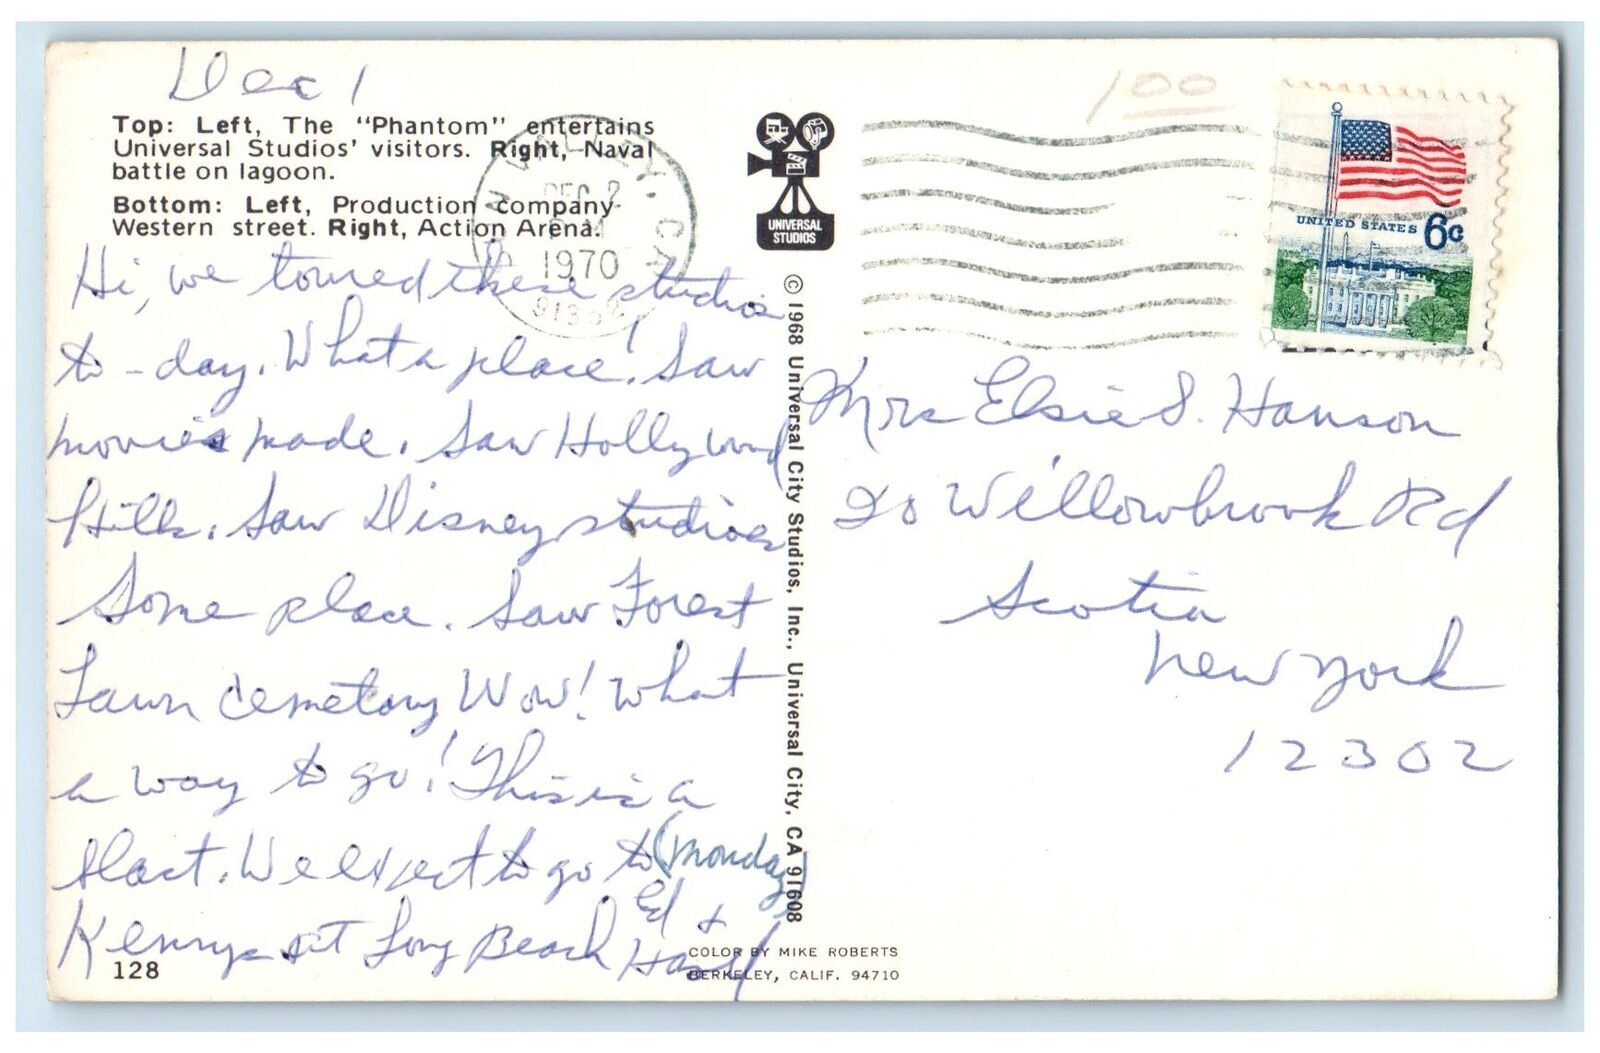 Dec 1
Top: Left, The "Phantom" entertains
Universal Studios' visitors. Right, Naval
battle on lagoon.
Bottom: Left, Production company
Western street. Right, Action Arena.
Hi, we toured these studios
to-day. What a place! Saw
movies made. Saw Hollywood
Hills. Saw Disney studios
Some place. Saw Forest
Lawn Cemetory Wow! What
a way to go! This is a
blast. We expect to go to (Monday)
Kennys at Long Beach Ed &
Hazel
128
VALLEY, CA
DEC 2
1970
UNIVERSAL
STUDIOS
© 1968 Universal City Studios, Inc., Universal City, CA 91608
COLOR BY MIKE ROBERTS
BERKELEY, CALIF. 94710
1 00
UNITED STATES 6c
Mrs Elsie S. Hanson
20 Willowbrook Rd
Scotia
New York
12302